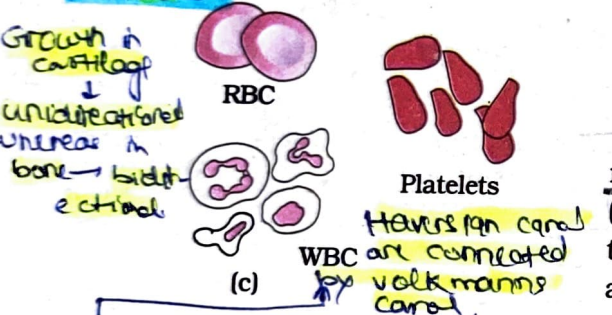 Growth in
cartilage
↓
unidirectional
whereas in
bone → bidir-
ectional
RBC
Platelets
WBC
(c)
Haversian canal
are connected
by volkmanns
canal.